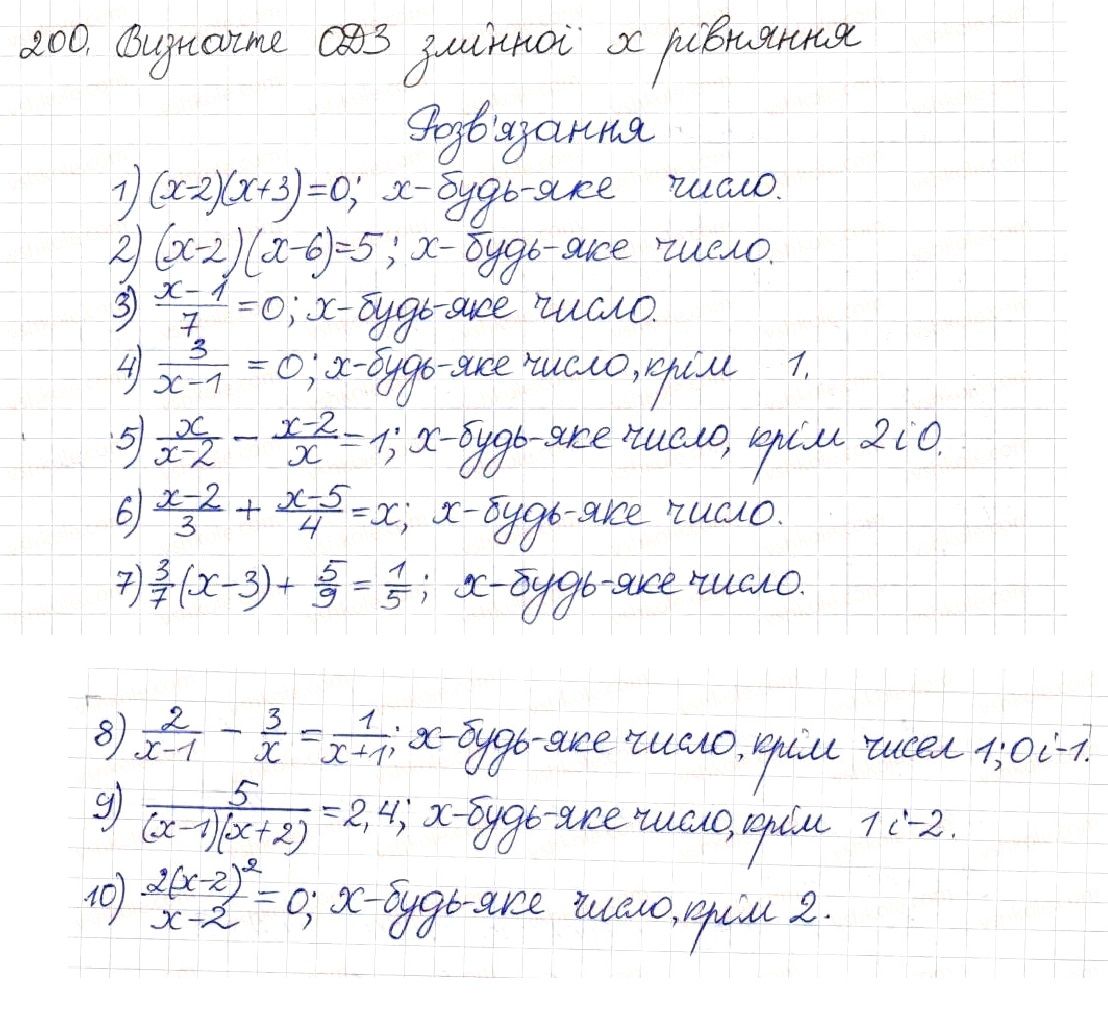 200. Визначте ОДЗ змінної x рівняння
Розв'язання
1) (x-2)(x+3)=0; x-будь-яке число.
2) (x-2)(x-6)=5; x-будь-яке число.
3) \frac{x-1}{7}=0; x-будь-яке число.
4) \frac{3}{x-1}=0; x-будь-яке число, крім 1.
5) \frac{x}{x-2}-\frac{x-2}{x}=1; x-будь-яке число, крім 2 і 0.
6) \frac{x-2}{3}+\frac{x-5}{4}=x; x-будь-яке число.
7) \frac{3}{7}(x-3)+\frac{5}{9}=\frac{1}{5}; x-будь-яке число.
8) \frac{2}{x-1}-\frac{3}{x}=\frac{1}{x+1}; x-будь-яке число, крім чисел 1; 0 і -1.
9) \frac{5}{(x-1)(x+2)}=2,4; x-будь-яке число, крім 1 і -2.
10) \frac{2(x-2)^2}{x-2}=0; x-будь-яке число, крім 2.